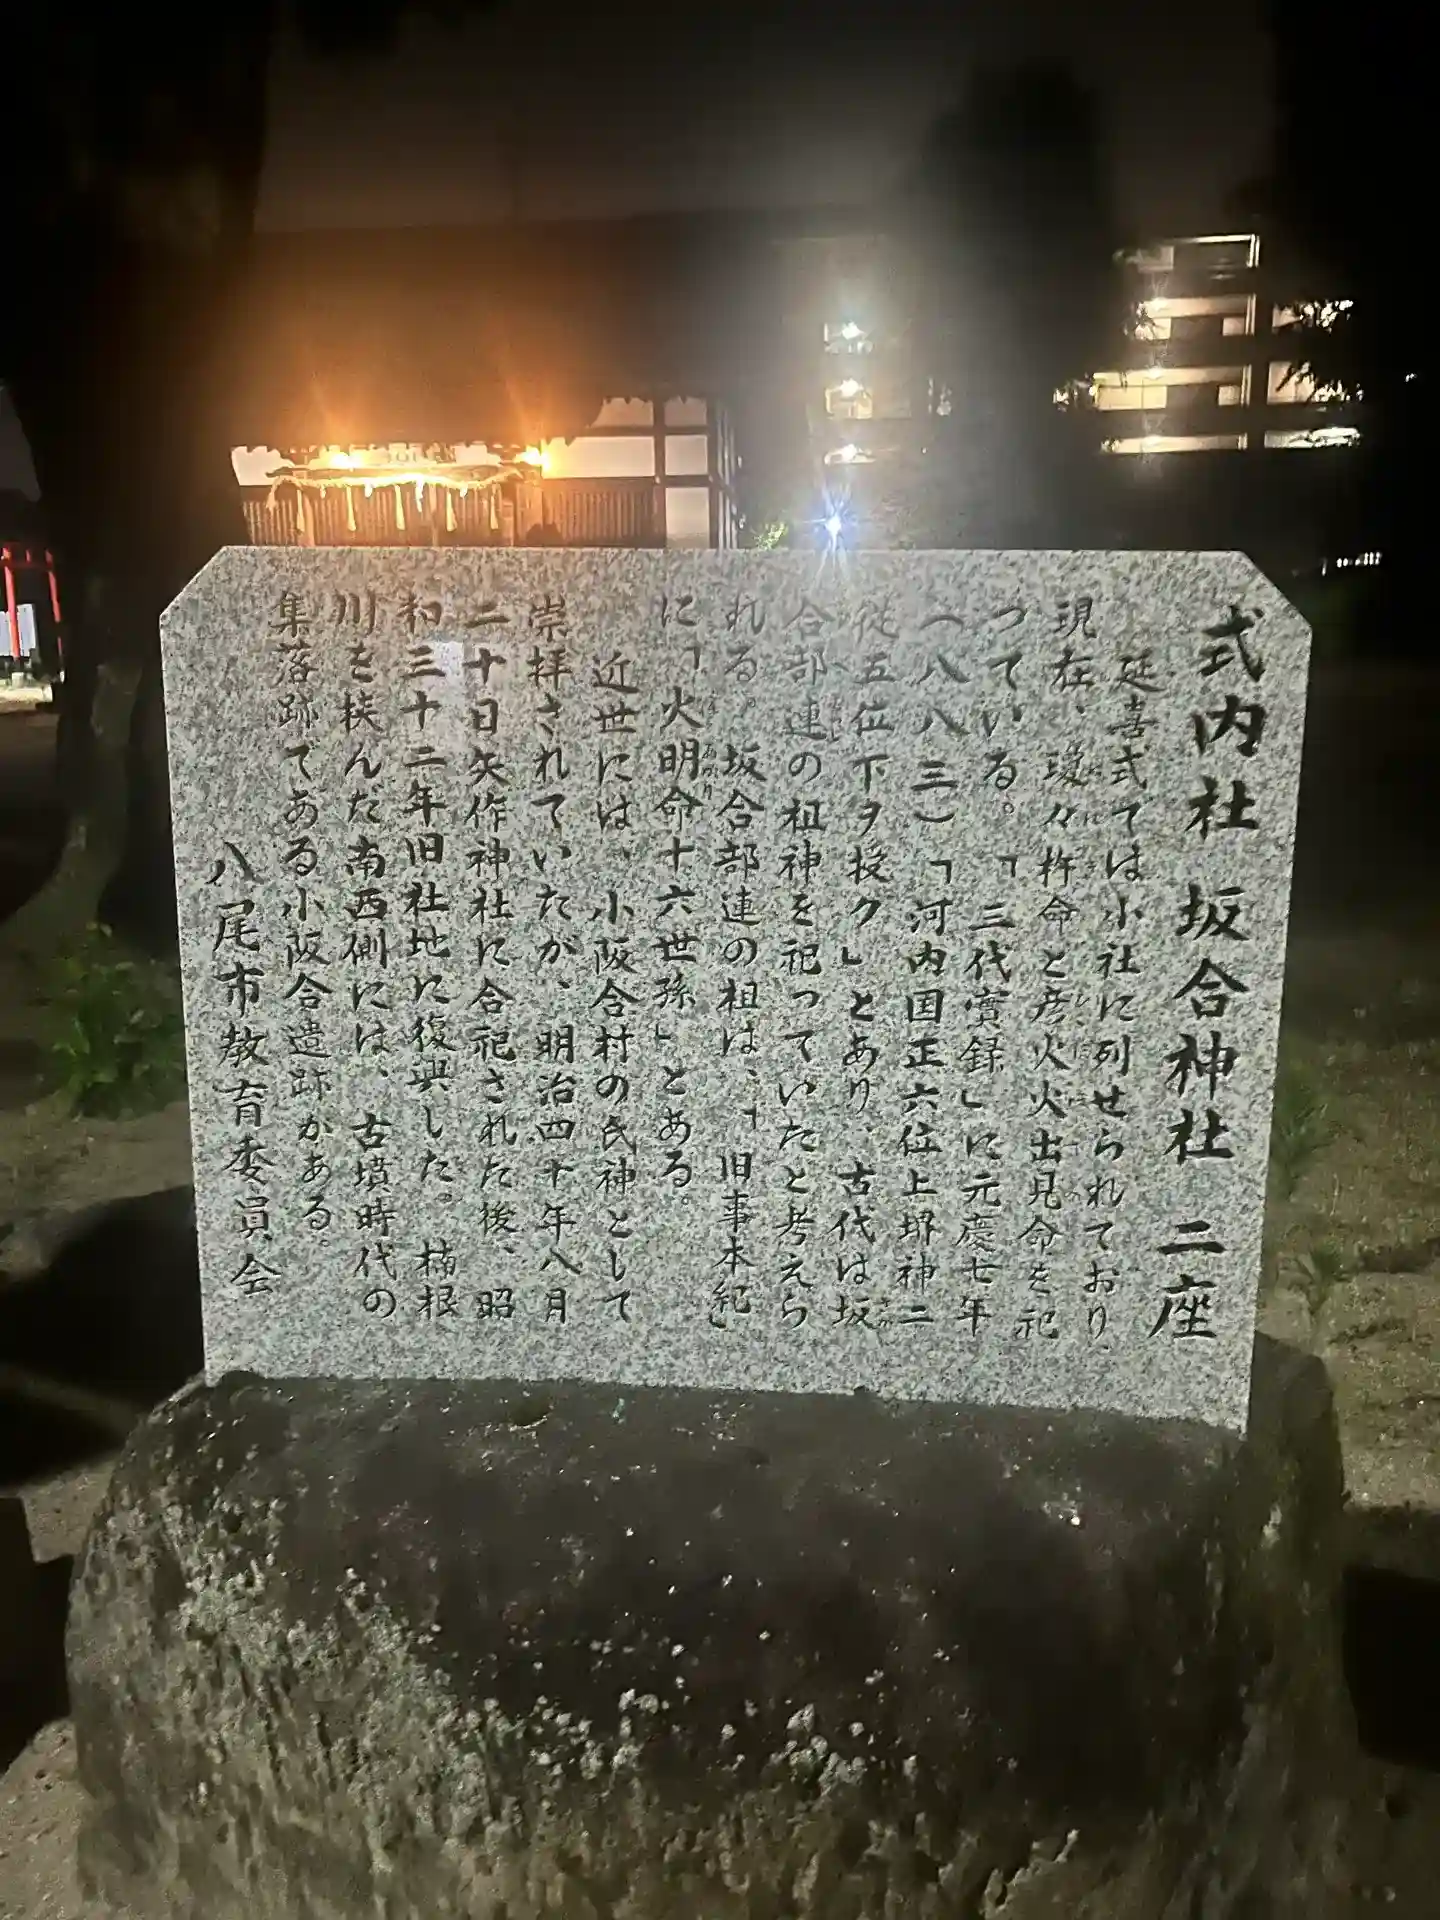 式内社 坂合神社 二座
延喜式では小社に列せられており、
現在、瓊々杵命と彦火火出見命を祀
っている。「三代實録」に元慶七年
(八八三)「河内国正六位上堺神二
従五位下ヲ授ク」とあり、古代は坂
合部連の祖神を祀っていたと考えら
れる。坂合部連の祖は、「旧事本紀」
に「火明命十六世孫」とある。
近世には、小阪合村の氏神として
崇拝されていたが、明治四十年八月
二十日矢作神社に合祀された後、昭
和三十二年旧社地に復興した。楠根
川を挟んだ南西側には、古墳時代の
集落跡である小阪合遺跡がある。
八尾市教育委員会